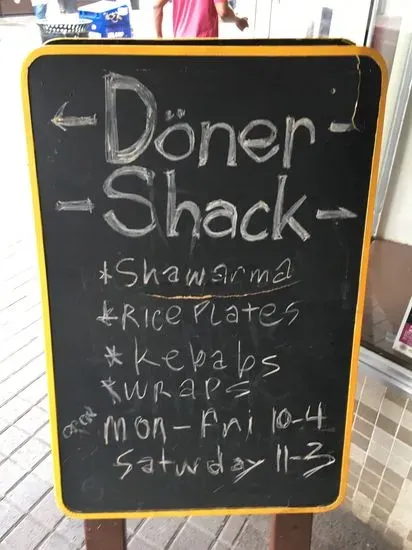 ← Döner -
- Shack →
* Shawarma
* Rice Plates
* Kebabs
* Wraps
open Mon - Fri 10-4
Saturday 11-3